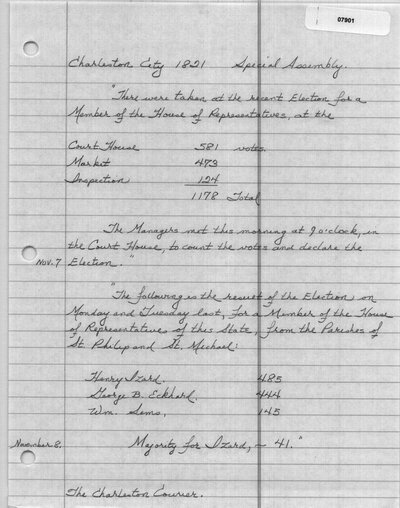 07901
Charleston City 1821 Special Assembly.
"There were taken at the recent Election for a
Member of the House of Representatives, at the
Court House 581 votes.
Market 473
Inspection 124
1178 Total
The Managers met this morning at 9 o'clock, in
the Court House, to count the votes and declare the
Nov. 7 Election."
"The following is the result of the Election on
Monday and Tuesday last, for a Member of the House
of Representatives of this State, from the Parishes of
St. Philip and St. Michael:
Henry Izard, 485
George B. Eckhard, 444
Wm. Sams, 145
November 8. Majority for Izard, — 41."
The Charleston Courier.